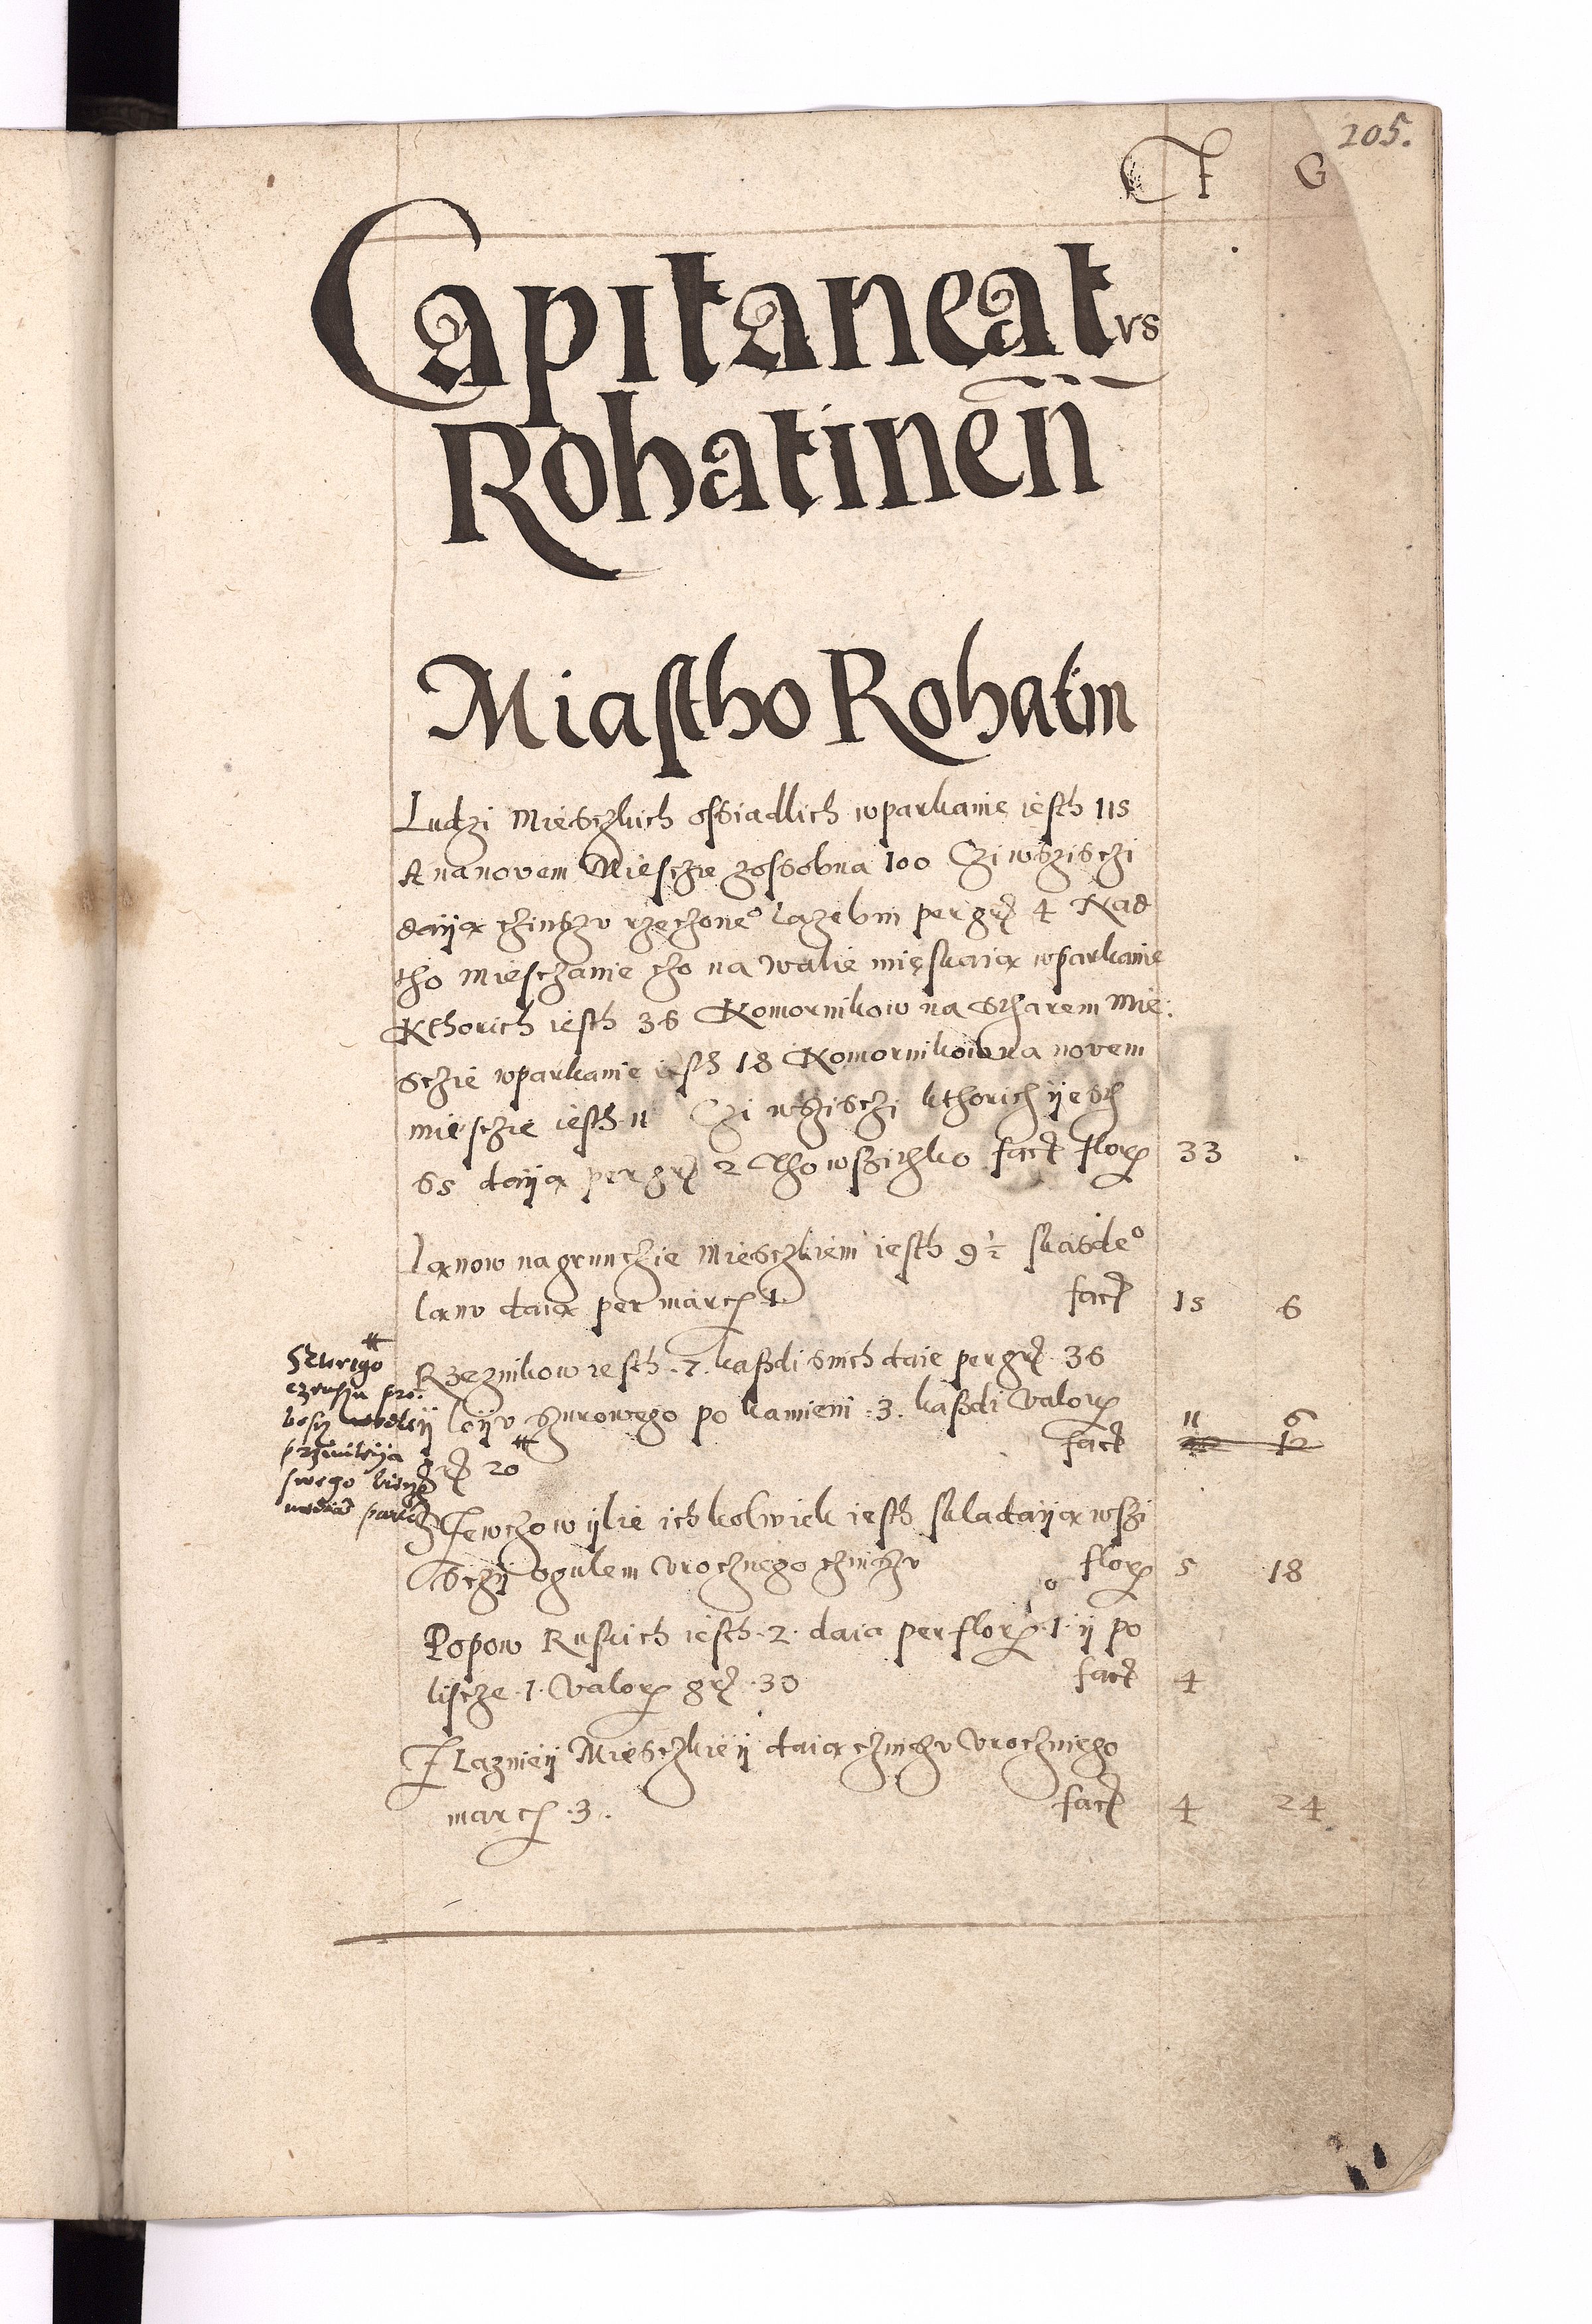 205.
F G
Capitaneatvs
Rohatinen̄
Miastho Rohatin
Ludzi Miesczkich ossiadlich wparkanie iesth 115
A na novem Miesczie zossobna 100 Czi wszisczi
daiją czinszv rzeczone⁰ lazebni per gr 4 Nad
tho miesczanie czo na walie mięskaią wparkanie
Kthorich iesth 36 Komornikow na Stharem Mie:
sczie wparkanie iesth 18 Komornikow na novem
miesczie iesth 11 Czi wszisczi kthorich ijesth
65 daiją per gr 2 Tho wszithko fact flor 33
lanow na grunczie Miesczkiem iesth 9½ skasde⁰
lanv daią per marc 1 fact 15 6
Rzeznikow iesth .7. kaßdi snich daie per gr 36
loijv szurowego po kamieni .3. kaßdi valor
gr 20 fact 11 6
12
swego
Zewczow ijlie ich kolwiek iesth skladaiją wszi
sczij ogulem vrocznego czinszv flor 5 18
Popow Ruskich iesth .2. daia per flor .1. ij po
liscze .1. valor gr .30 fact 4
Z Laznieij Miesczkieij daią czinszv vroczniego
marc .3. fact 4 24